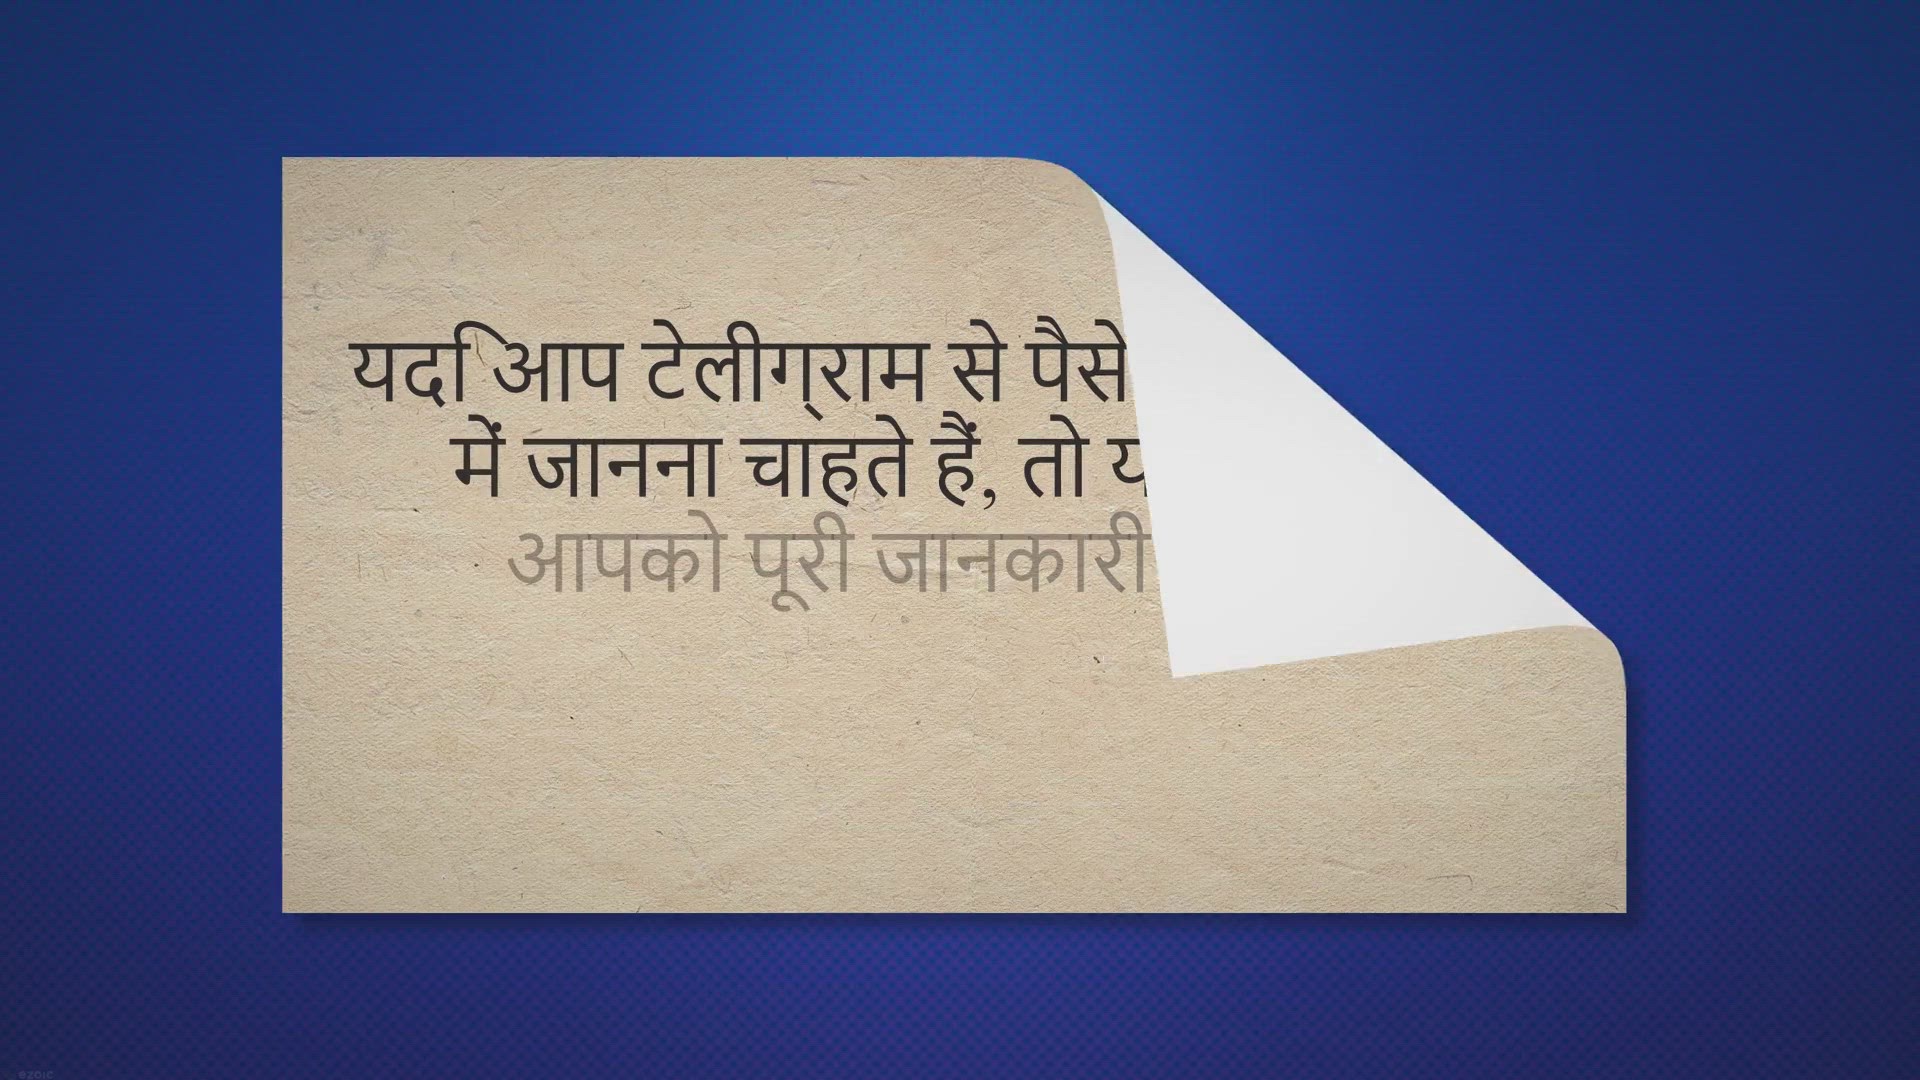 यदि आप टेलीग्राम से पैसे
में जानना चाहते हैं, तो
आपको पूरी जानकारी
ezoic